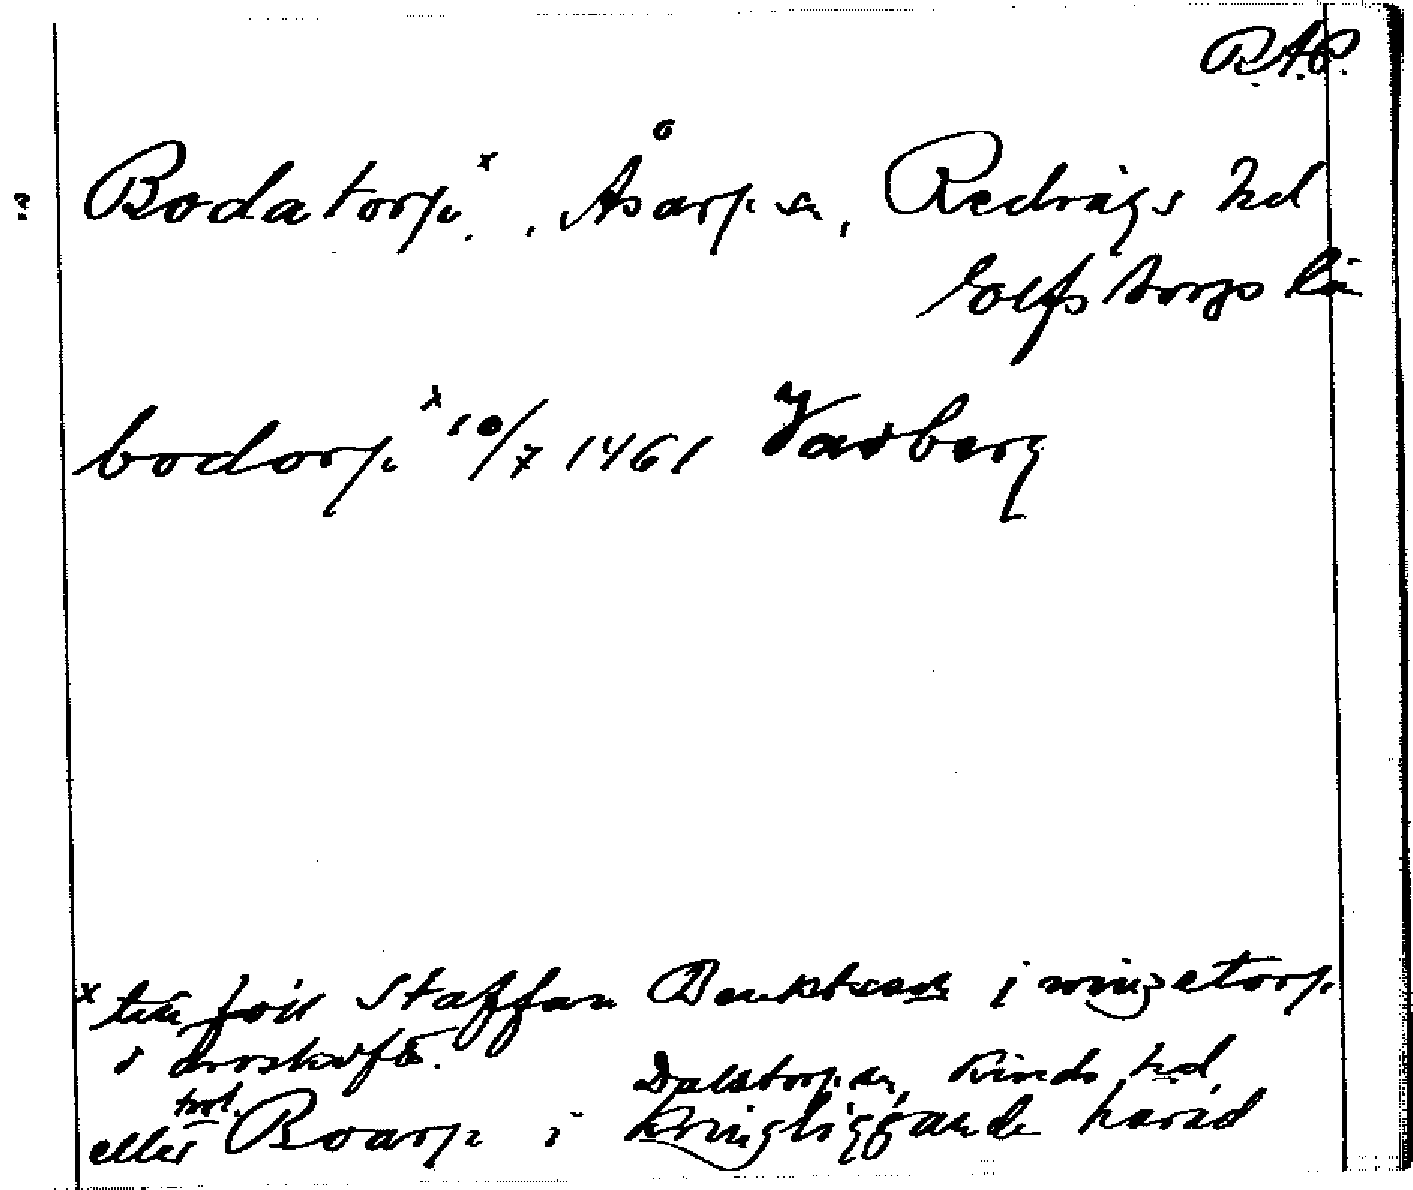 R.A.P.
Bodatorp.ˣ, Åsarp sn, Redvägs hd
Elfsborgs län
bodorp ˣ 10/7 1461 Varberg
x tillföll Staffan Benktsson i wingetorp
i arvskifte.
trol. Dalstorp sn, Kinds hd,
eller Boarp i kringliggande härad